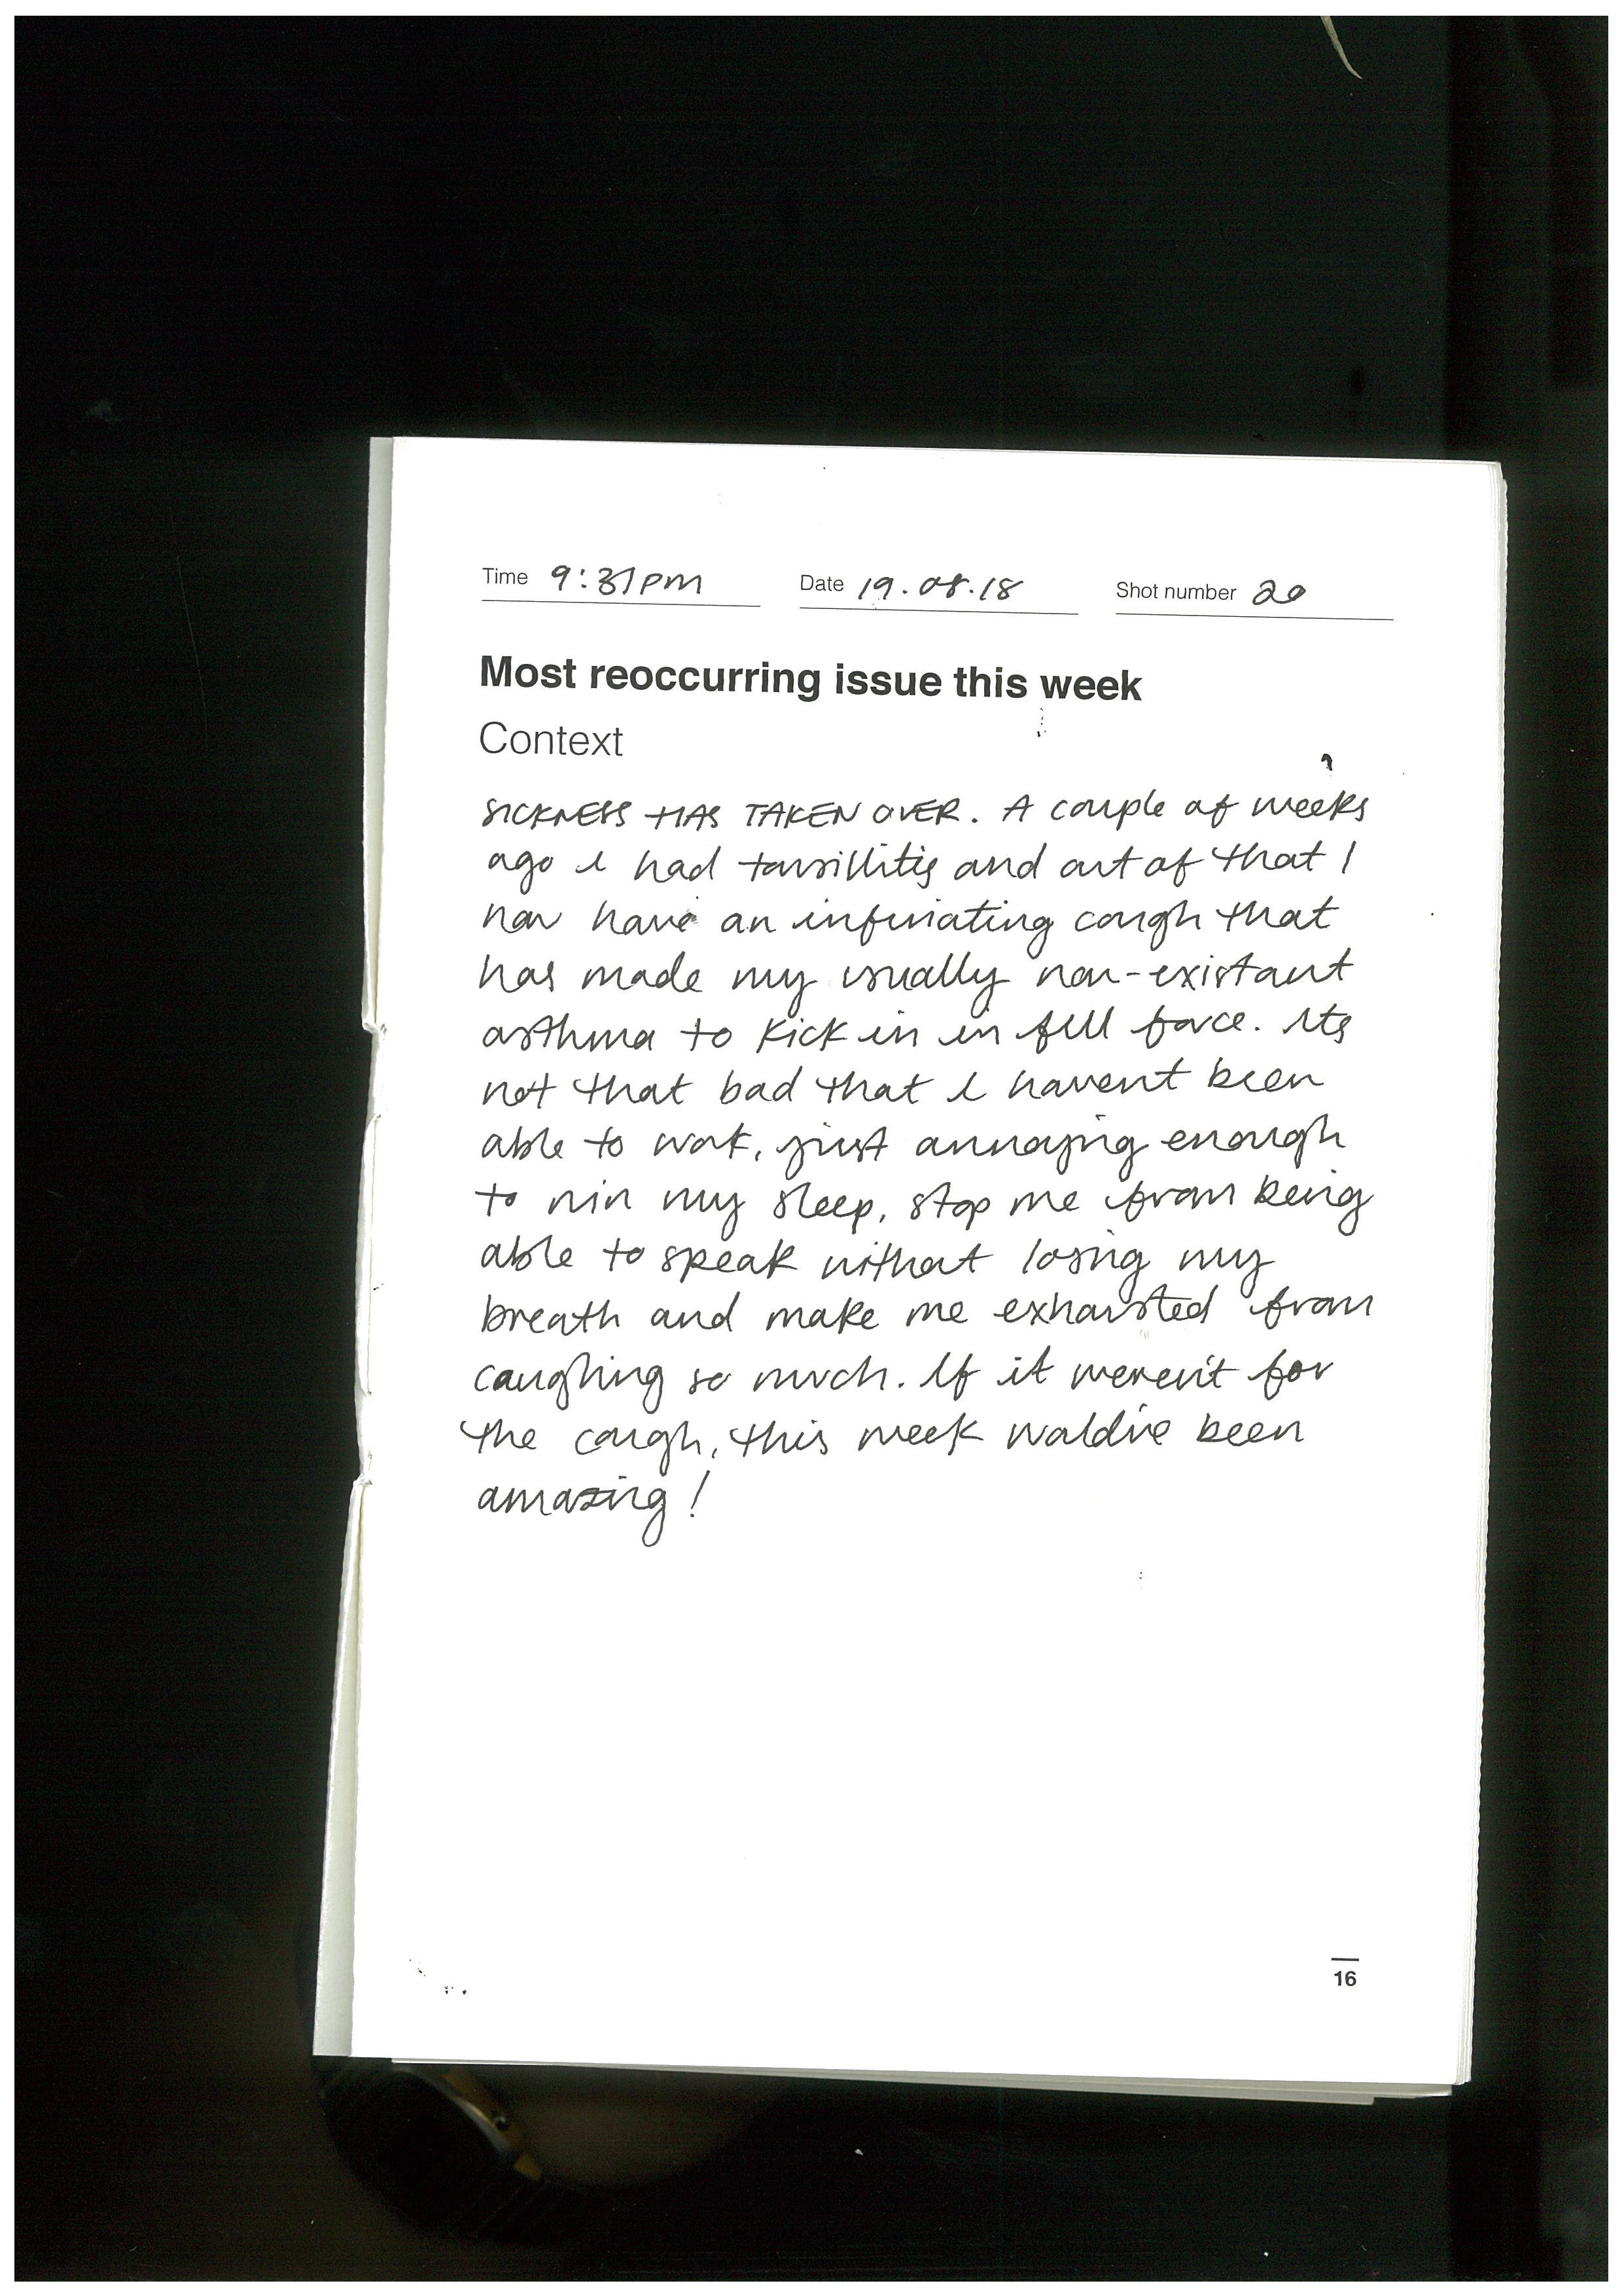 Time 9:31pm Date 19.08.18 Shot number 20
Most reoccurring issue this week
Context
SICKNESS HAS TAKEN OVER. A couple of weeks
ago I had tonsillitis and out of that I
now have an infuriating cough that
has made my usually non-existant
asthma to kick in in full force. Its
not that bad that I havent been
able to work, just annoying enough
to ruin my sleep, stop me from being
able to speak without losing my
breath and make me exhausted from
coughing so much. If it weren't for
the cough, this week would've been
amazing!
16